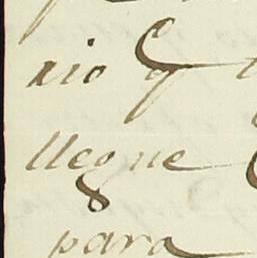 nio q
llegue
para